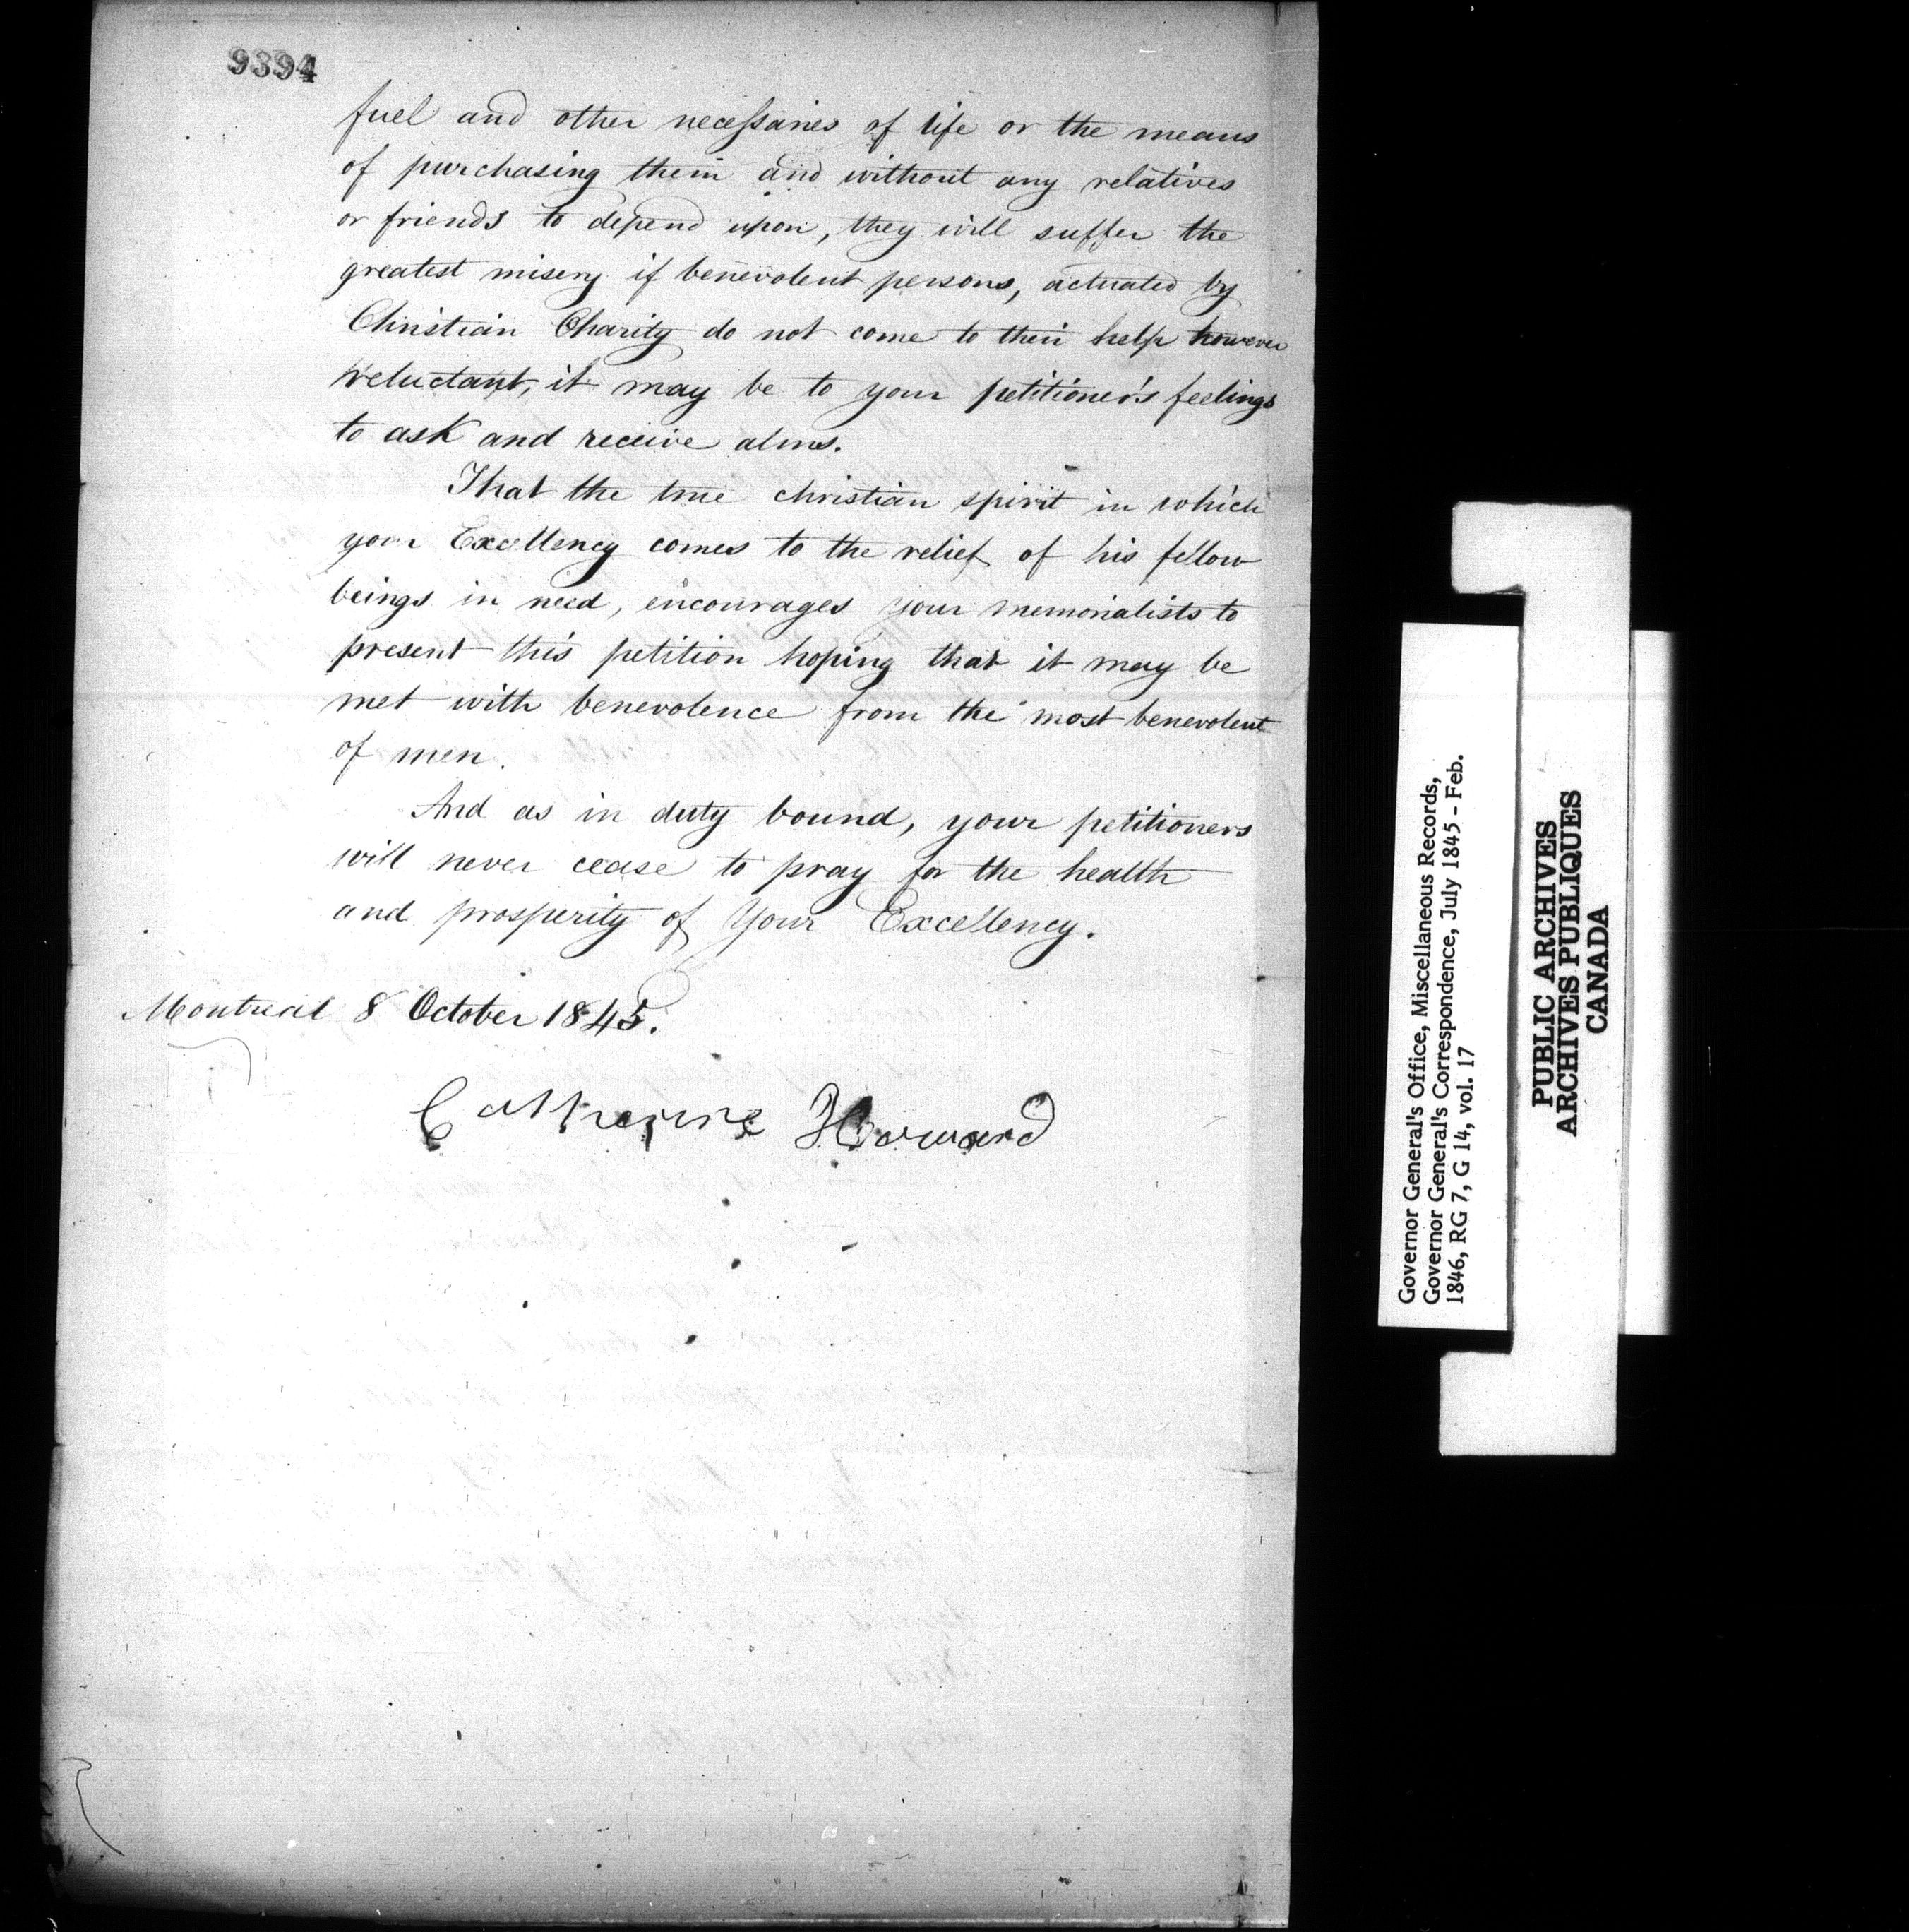 9394
fuel and other necessaries of life or the means
of purchasing them and without any relatives
or friends to depend upon, they will suffer the
greatest misery if benevolent persons, actuated by
Christian Charity do not come to their help however
reluctant, it may be to your petitioner's feelings
to ask and receive alms.
That the true christian spirit in which
your Excellency comes to the relief of his fellow
beings in need, encourages your memorialists to
present this petition hoping that it may be
met with benevolence from the most benevolent
of men.
And as in duty bound, your petitioners
will never cease to pray for the health
and prosperity of Your Excellency.
Montreal 8 October 1845.
Catherine Howard
Governor General's Office, Miscellaneous Records,
Governor General's Correspondence, July 1845 - Feb.
1846, RG 7, G 14, vol. 17
PUBLIC ARCHIVES
ARCHIVES PUBLIQUES
CANADA